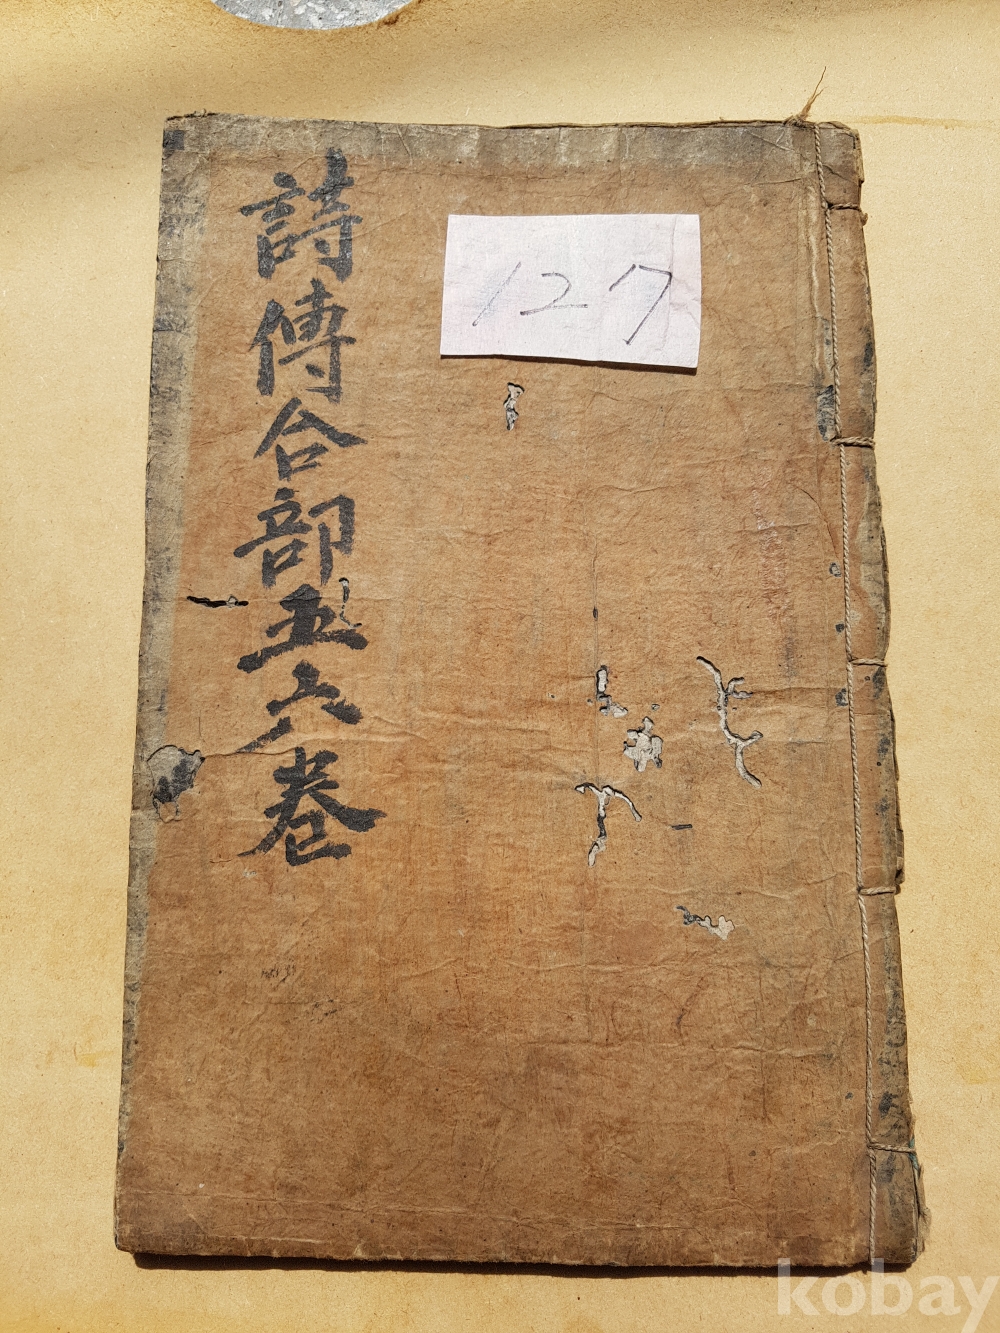 詩傳合部五六卷
127
kobay